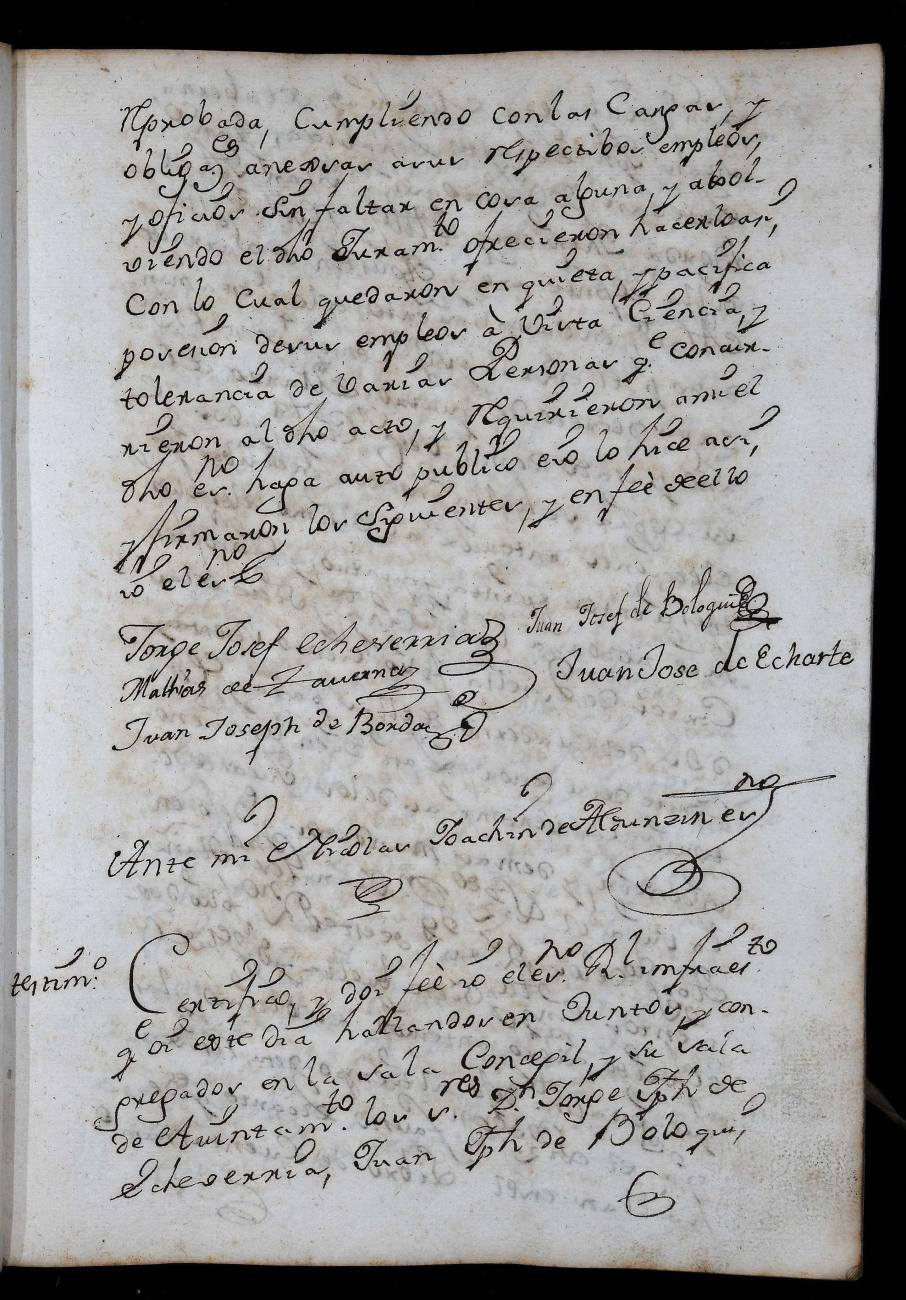 Reprobada, Cumpliendo con las Cargas, y
obligaz.es anexsas a sus respectibos empleos,
y ofizios sin faltar en cosa alguna, y absol-
viendo el dho Juram.to ofrecieron hacerlo asi,
Con lo Cual quedaron en quieta, y pacifica
posesion de sus empleos à Vista Ciencia, y
tolerancia de varias Personas q.e concur-
rieron al dho acto, y Requirieron ami el
dho es.no haga auto publico e io lo hice asi,
y firmaron los Siguientes, y en feè de ello
io el es.no
Jorge Josef Echeverria
Juan Josef de Bologui
Mathias de Taverna
Juan Jose de Echarte
Juan Joseph de Borda
Ante mi Nicolas Joachin de Alduncin es.no
testim.o
Certifico, y doi feè io el es.no R.l infraes.to
q.e oi este dia hallandos en Juntos, y con-
gregados en la sala Concegil, y su sala
de Aiuntam.to los s.res D.n Jorge Jph de
Echeverria, Juan Jph de Bologui,